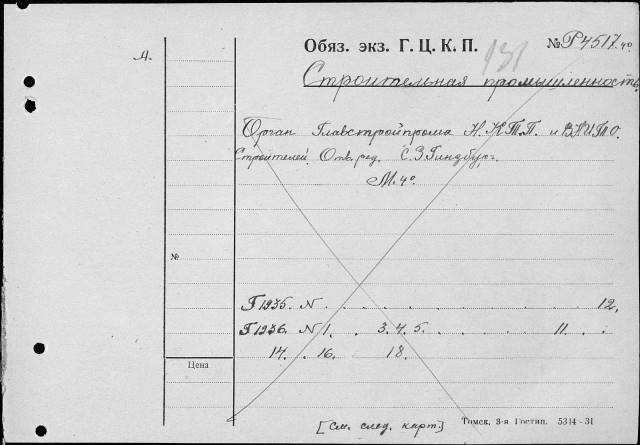 А.
Обяз. экз. Г. Ц. К. П. 131 № Р4517.4°
Строительная промышленность
Орган Главстройпрома Н.К.Т.П. и ВНИТО
Строителей. Отв. ред. С.З. Гинзбург.
М. 4°.
№
Г 1935. N 12.
Г 1936. N 1. 3. 4. 5. 11.
14. 16. 18.
Цена
[См. след. карт.] Томск, 3-я Гостип. 5314-31